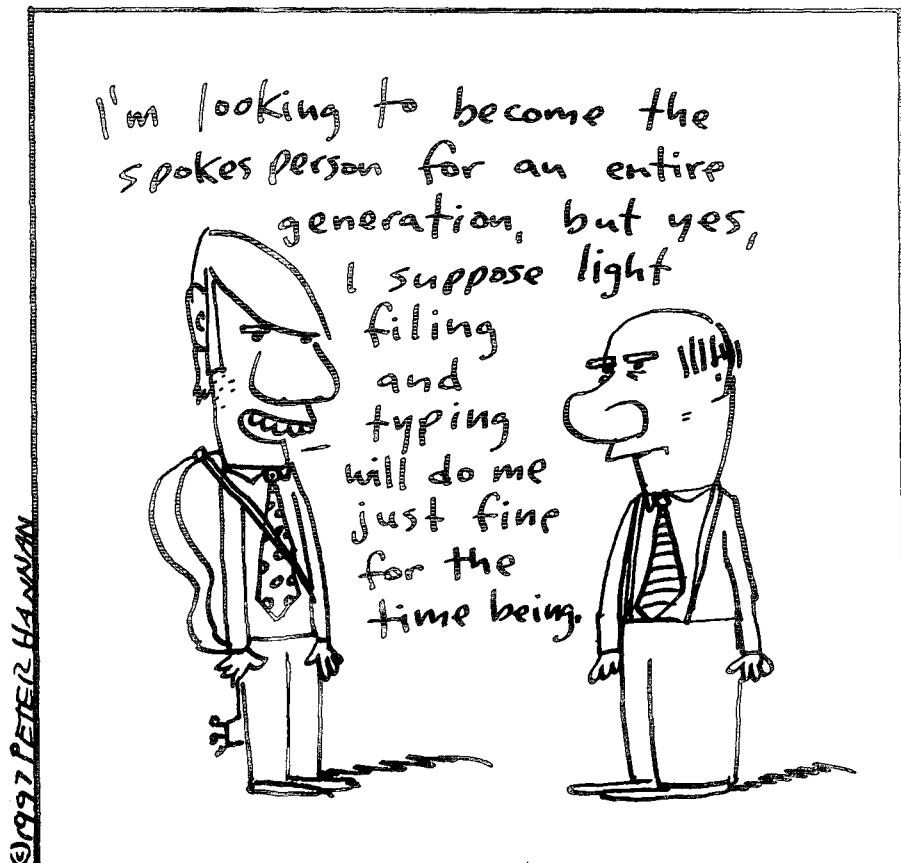 I'm looking to become the
spokesperson for an entire
generation, but yes,
I suppose light
filing
and
typing
will do me
just fine
for the
time being.
©1997 PETER HANNAN